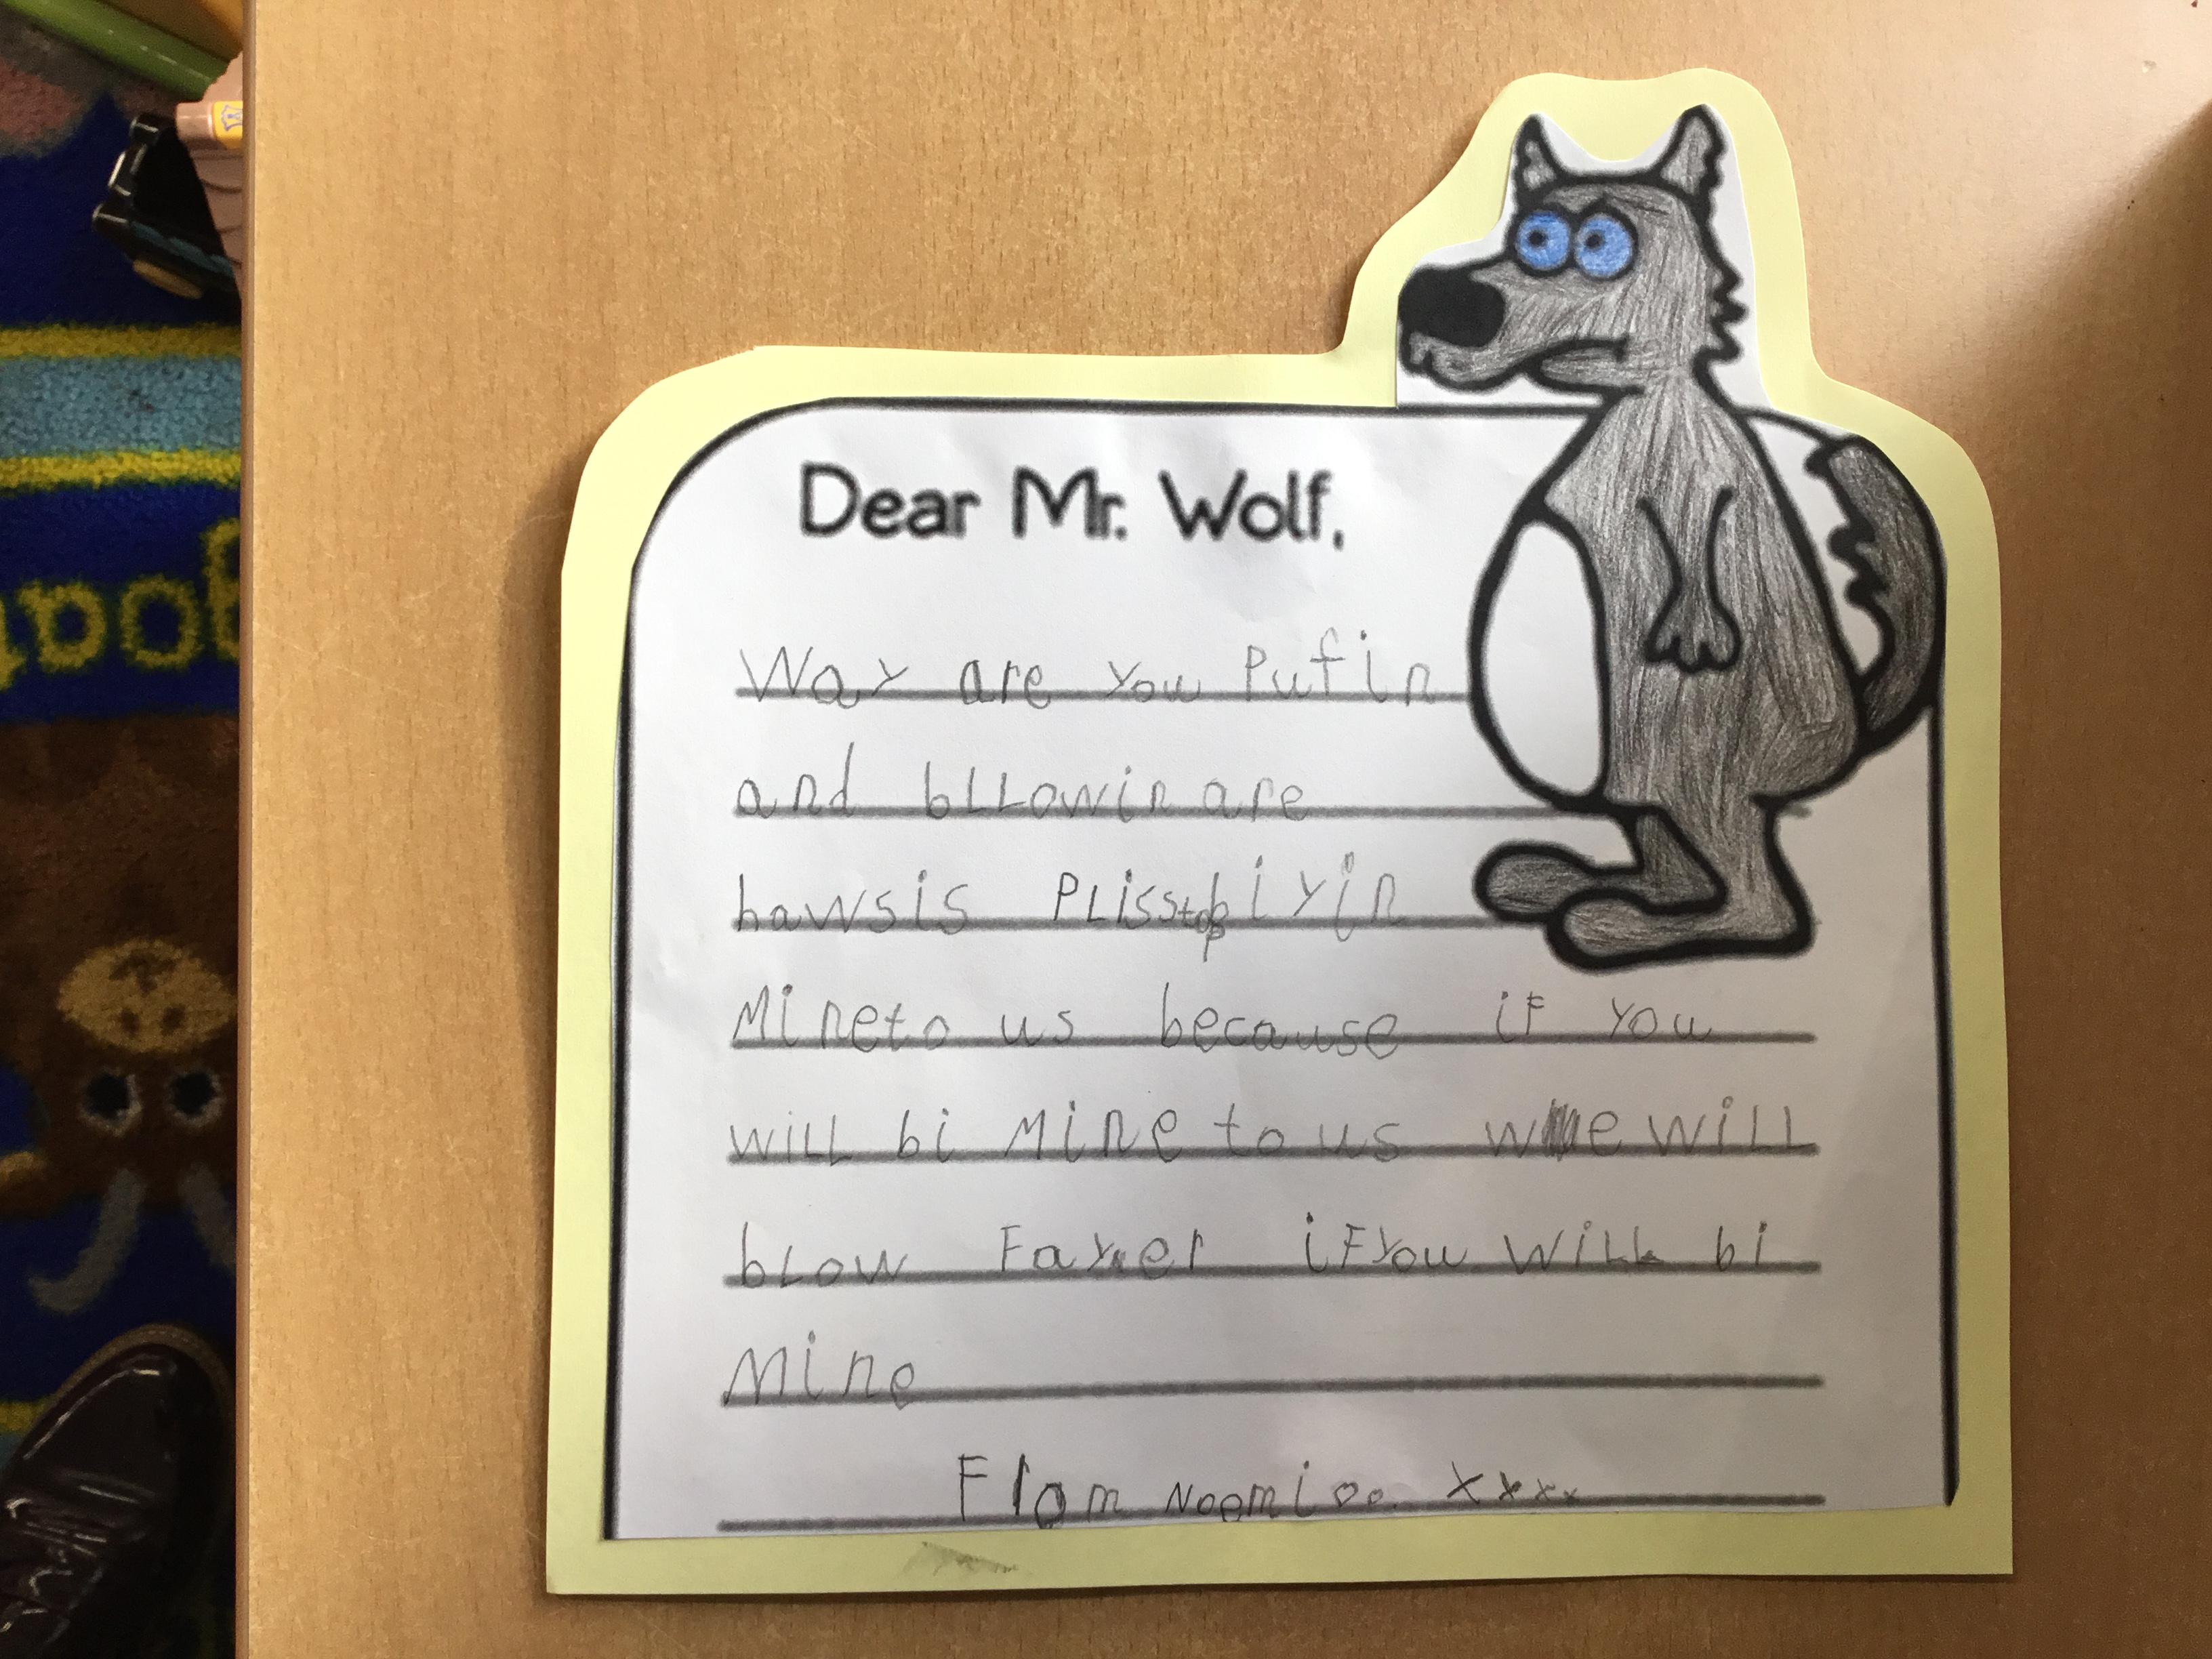 Dear Mr. Wolf,
Way are you Pufin
and bLLowin are
hawsis PLisstop biyin
Mineto us because iF you
wiLL bi Mine to us we wiLL
bLow Fayer iFyou WiLL bi
Mine
From Noemi oo. xxxx